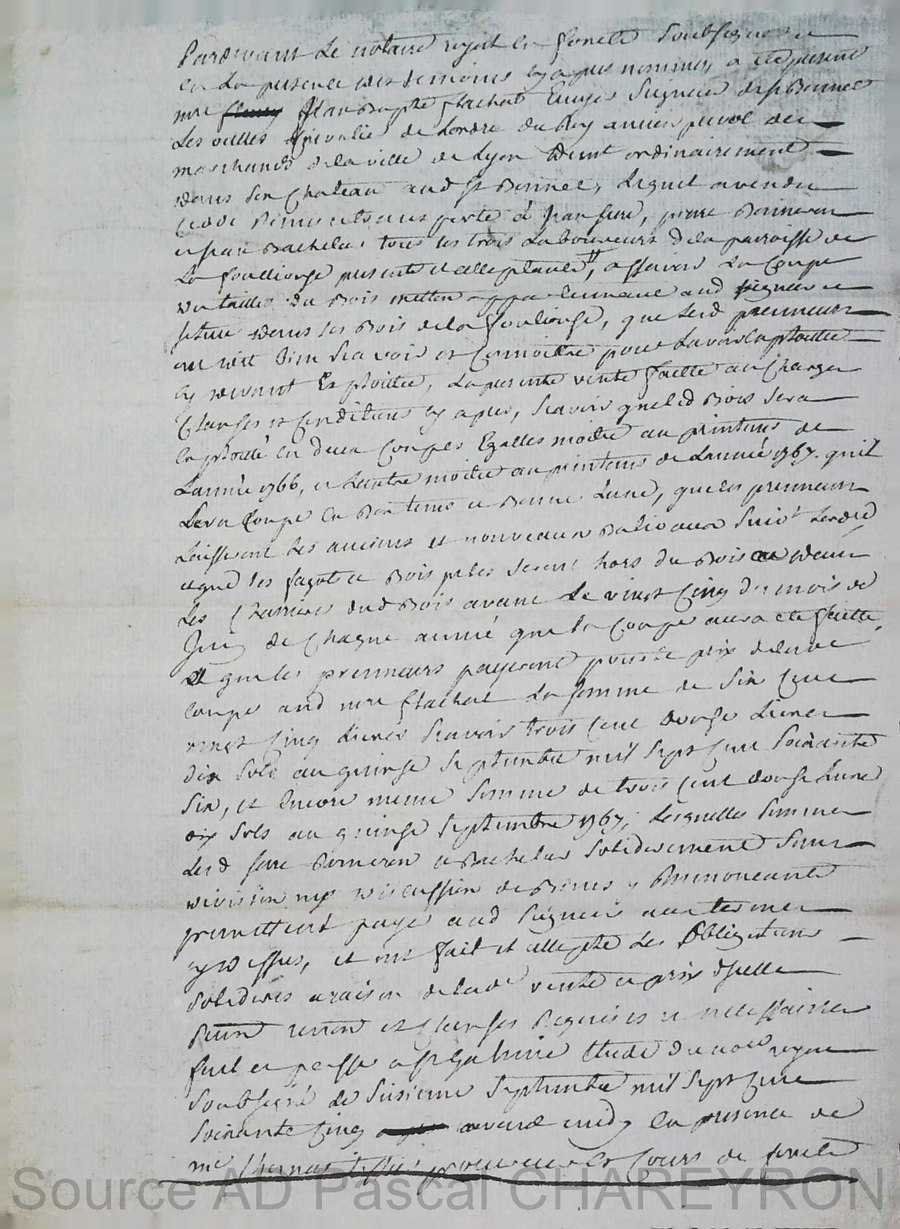 Pardevant Le notaire royal en forests soubsigné et
en La presence des temoins cy apres nommes, a été present
mre Jean Bapte flachat Ecuyer Seigneur de St Bonnet
Les oulles Chevalier de Lordre du Roy ancien prevot des
marchands de la ville de Lyon vivant ordinairement
dans Son Chateau aud St Bonnet, Lequel a vendu
cedé remis et transporté à Jean fure, pierre
et Jean Bachelas tous les trois Laboureurs de la parroisse de
La fouillouse presents et acceptants, assavoir La Coupe
du taillis du Bois appartenant aud Seigneur et
situé dans les Bois de la fouillouse, que lesd preneurs
ont dit bien Scavoir et Connoitre pour
La presente vente faitte aux Charges
Clauses et Conditions cy apres, Scavoir que led Bois Sera
exploité en deux Coupes Egalles moitié au printems de
L'année 1766, et L'autre moitié au printems de L'année 1767. qu'il
Sera Coupé en Bon tems et Bonne Lune, que les preneurs
Laisseront les anciens et nouveaux Balivaux Suivt Lordce
et que les fagots et Bois pelés Seront hors du Bois
Les Charrieres dud Bois avant Le vingt Cinq du mois de
Juin de Chaque année que la Coupe aura eté faitte
Et que les preneurs payeront pour le prix de lade
Coupe aud mre flachat La Somme de Six Cent
vingt Cinq Livres Scavoir trois Cent douze Livres
dix Sols au quinze Septembre mil Sept Cent Soixante
Six, et Encore meme Somme de trois Cent douze Livres
dix Sols au quinze Septembre 1767, Lesquelles Sommes
Lesd fure et Bachelas Solidairement Sans
division ny discussion de Biens y Renonceants
promettent payer aud Seigneur aux termes
cy dessus, et ont fait et accepté les obligations
Solidaires a raison de lade vente et prix d'icelle
et Clauses Requises et necessaires
fait et passé a St Galmier Etude du nore royal
Soubsigné le Sixieme Septembre mil Sept Cent
Soixante Cinq avant midy en presence de
me Thomas procureur es Cours de forests
Source AD Pascal CHAREYRON